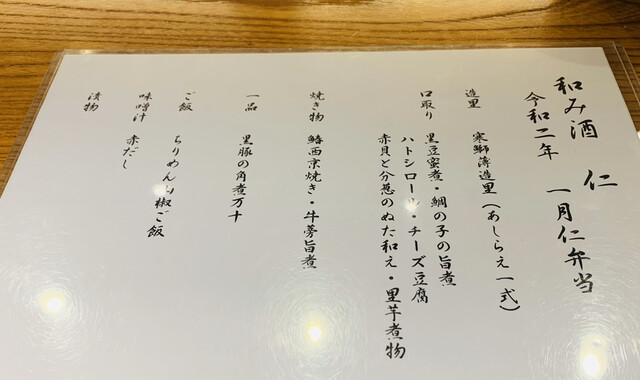 和み酒 仁
令和二年 一月仁弁当
造里 寒鰤薄造里(あしらえ一式)
口取り 黒豆蜜煮・鯛の子の旨煮
ハトシロール・チーズ豆腐
赤貝と分葱のぬた和え・里芋煮物
焼き物 鰆西京焼き・牛蒡旨煮
一品 黒豚の角煮万十
ご飯 ちりめん山椒ご飯
味噌汁 赤だし
漬物